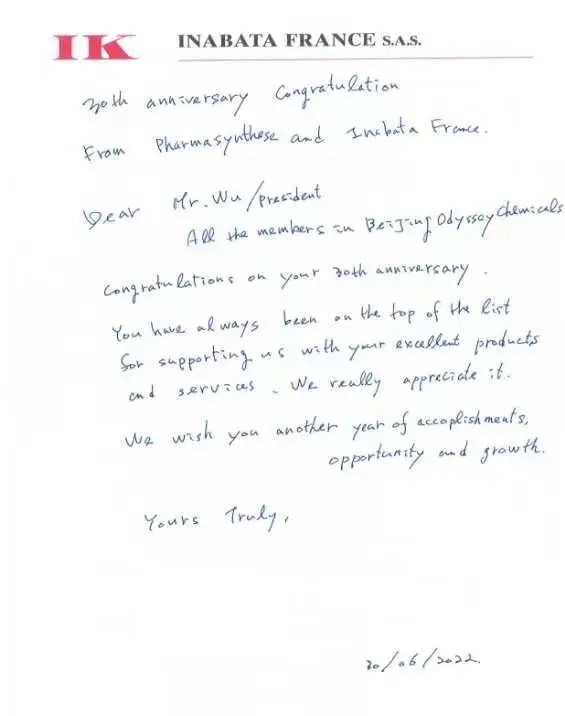 IK INABATA FRANCE S.A.S.
30th anniversary Congratulation
From Pharmasynthese and Inabata France.
Dear Mr. Wu/president
All the members in Beijing Odyssey Chemicals
Congratulations on your 30th anniversary.
You have always been on the top of the list
for supporting us with your excellent products
and services. We really appreciate it.
We wish you another year of accoplishments,
opportunity and growth.
Yours Truly,
20/06/2022